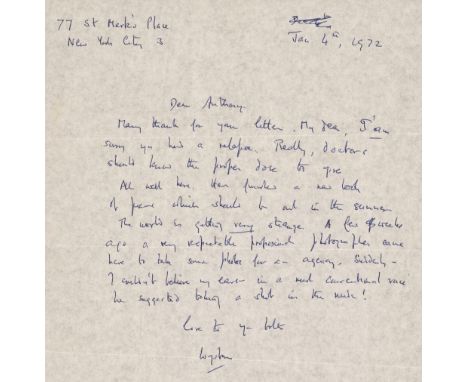 77 St Mark's Place
New York City 3
Jan 4th, 1972
Dear Anthony
Many thanks for your letter. My dear, I am
sorry you had a relapse. Really, doctors
should know the proper dose to give
All well here. Have finished a new book
of poems which should be out in the summer
The world is getting very strange. A few weeks
ago a very reputable professional photographer came
here to take some photos for an agency. Suddenly -
I couldn't believe my ears - in a most conventional voice
he suggested taking a shot in the nude!
love to you both
Wystan